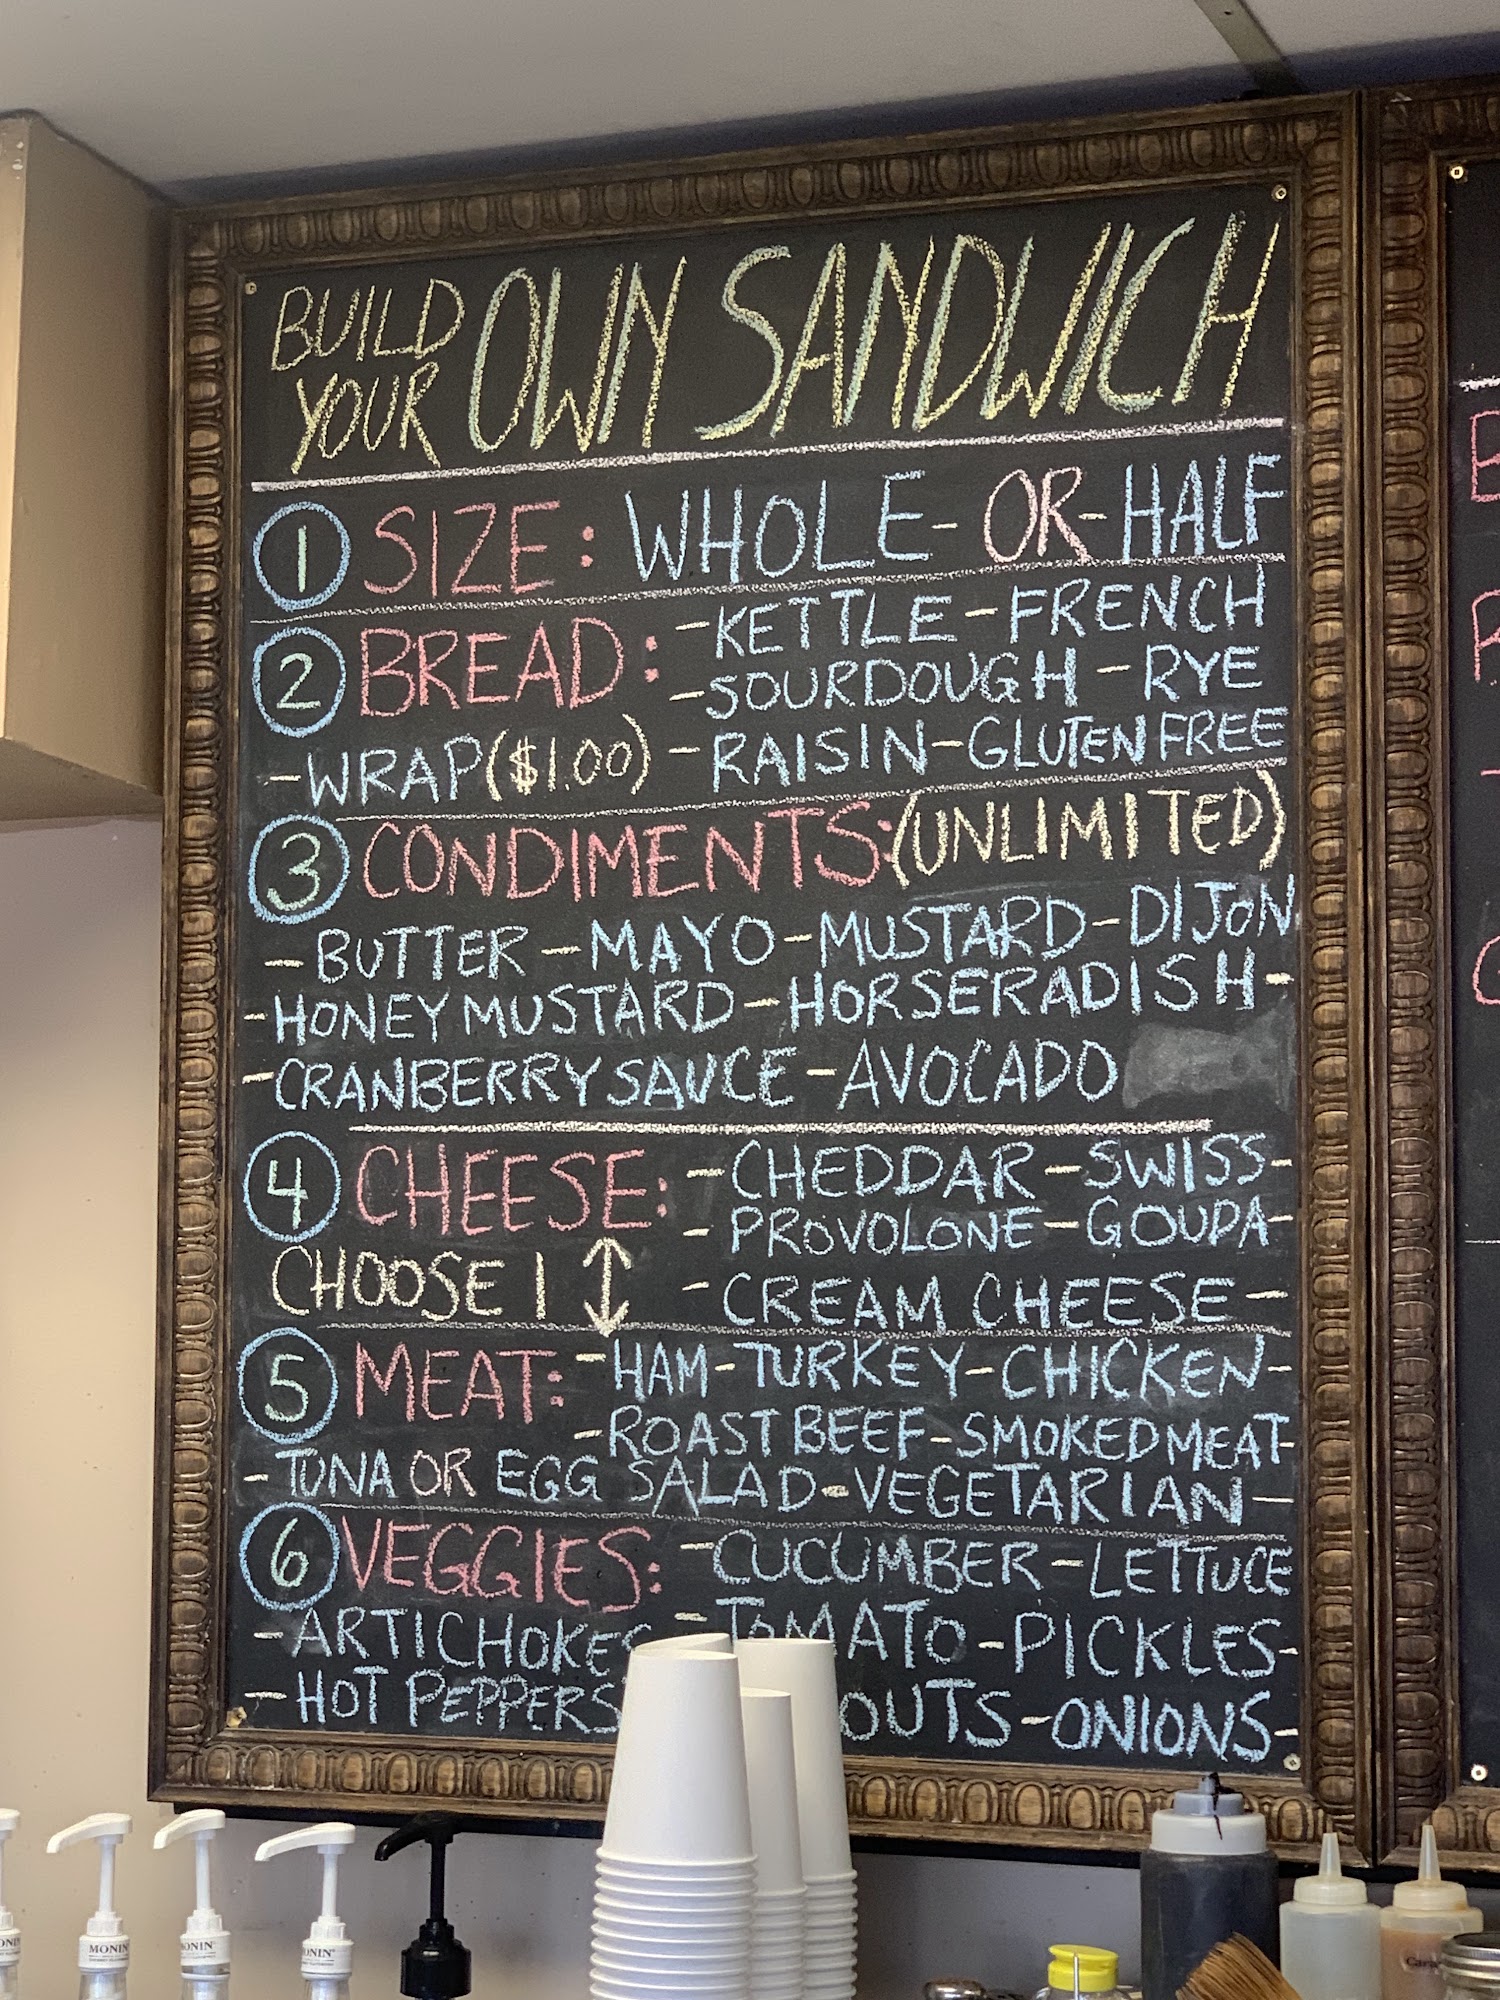 BUILD YOUR OWN SANDWICH
1 SIZE: WHOLE - OR - HALF
2 BREAD: - KETTLE - FRENCH
- SOURDOUGH - RYE
- WRAP ($1.00) - RAISIN - GLUTEN FREE
3 CONDIMENTS: (UNLIMITED)
- BUTTER - MAYO - MUSTARD - DIJON
- HONEY MUSTARD - HORSERADISH -
- CRANBERRY SAUCE - AVOCADO
4 CHEESE: - CHEDDAR - SWISS -
- PROVOLONE - GOUDA -
CHOOSE 1 ↕ - CREAM CHEESE -
5 MEAT: - HAM - TURKEY - CHICKEN -
- ROAST BEEF - SMOKED MEAT -
- TUNA OR EGG SALAD - VEGETARIAN -
6 VEGGIES: - CUCUMBER - LETTUCE
- ARTICHOKES - TOMATO - PICKLES -
- HOT PEPPERS OUTS - ONIONS -
MONIN
MONIN
MONIN